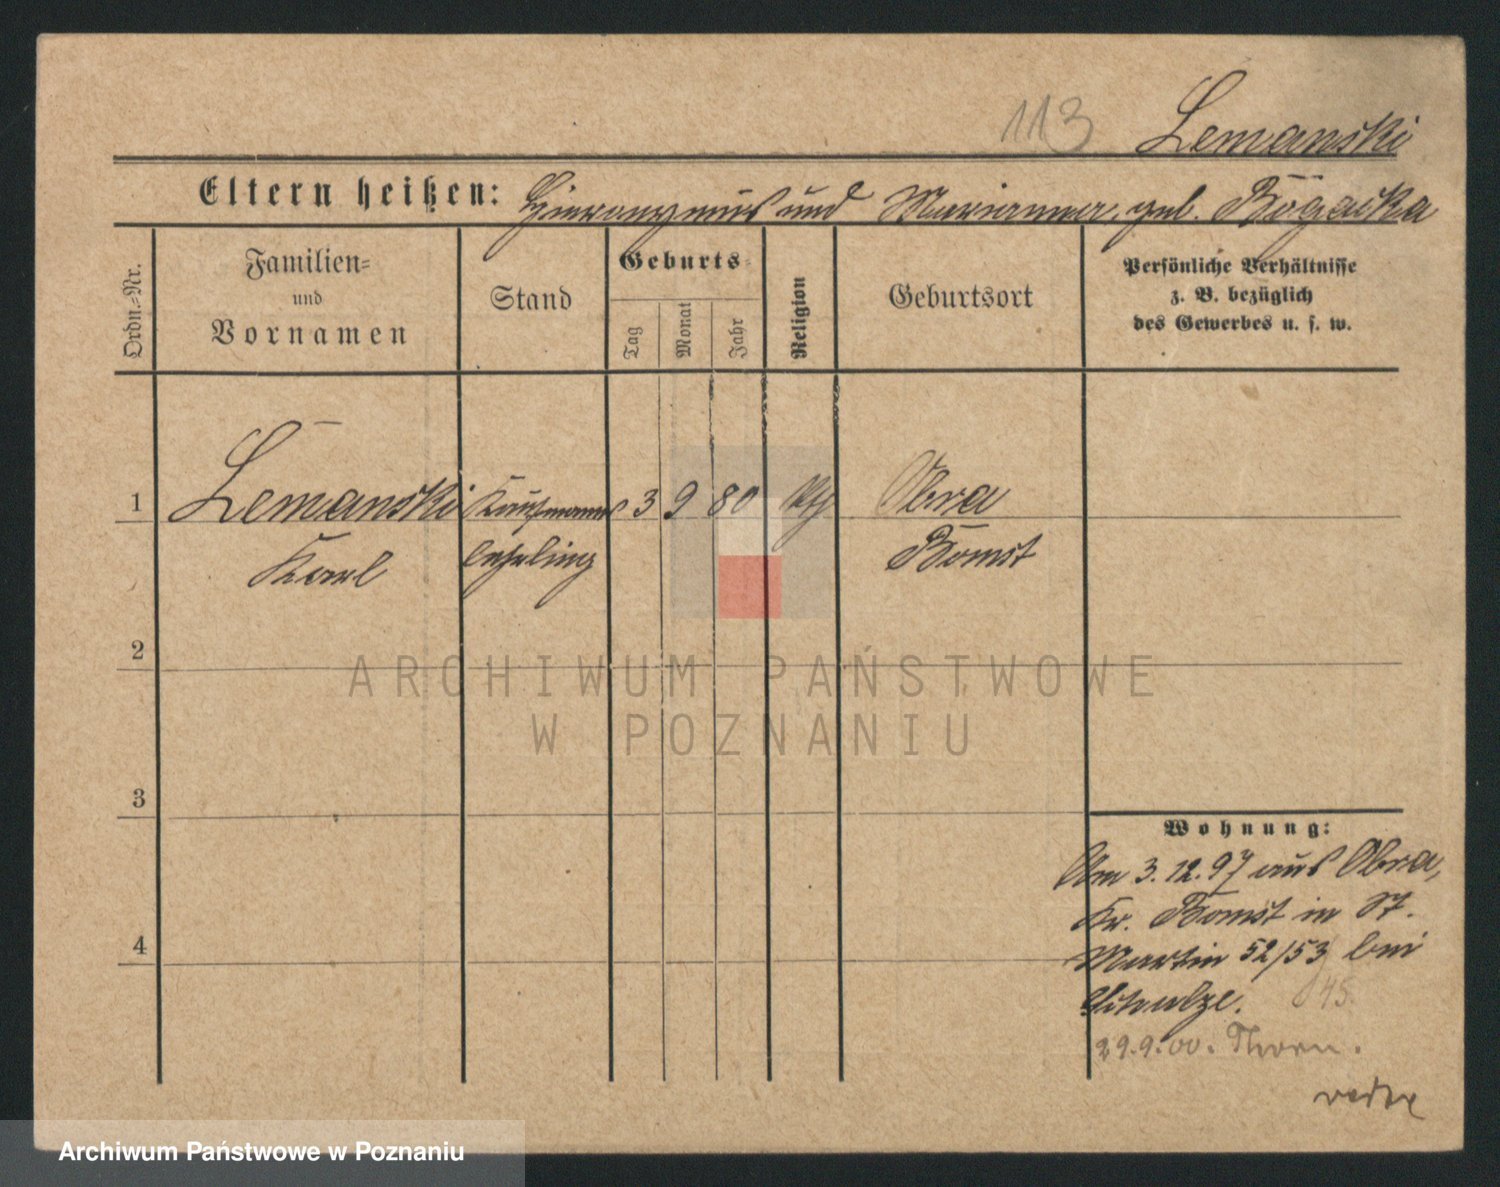 113 Lemanski
Eltern heißen: Hieronymus und Marianna, geb. Bogacka
Ordn.=Nr.
Familien=
und
Vornamen
Stand
Geburts=
Tag
Monat
Jahr
Religion
Geburtsort
Persönliche Verhältnisse
z. B. bezüglich
des Gewerbes u. s. w.
1 Lemanski Kaufmanns 3 9 80 Obra
Karl lehrling Bomst
2
3
4
Wohnung:
Am 3.12.97 aus Obra,
Kr. Bomst in St.
Martin 52/53 bei
45.
29.9.00. Thorn.
ARCHIWUM PAŃSTWOWE
W POZNANIU
Archiwum Państwowe w Poznaniu